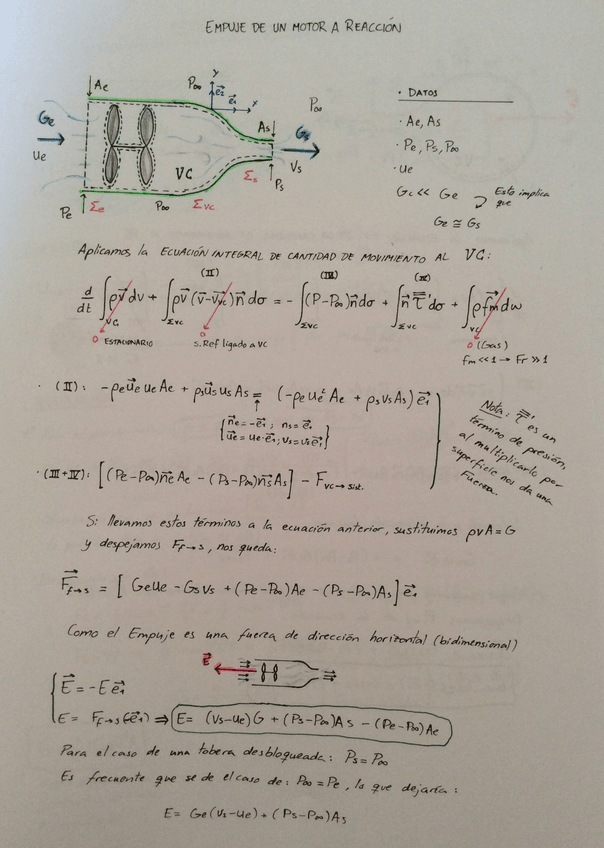 EMPUJE DE UN MOTOR A REACCIÓN
Ae
P∞
y
e⃗₂
e⃗₁
x
P∞
Ge
As
Gs
ue
VC
Σs
Vs
Ps
Pe
Σe
P∞
Σvc
· DATOS
· Ae, As
· Pe, Ps, P∞
· ue
Gc << Ge
Esto implica que
Ge ≅ Gs
Aplicamos la ECUACIÓN INTEGRAL DE CANTIDAD DE MOVIMIENTO AL VC:
(II) (III) (IV)
d/dt ∫ ρv⃗ dv + ∫ ρv⃗ (v⃗-v⃗vc) n⃗ dσ = - ∫ (P-P∞) n⃗ dσ + ∫ n⃗ τ' dσ + ∫ ρ f⃗m dω
VC Σvc Σvc Σvc VC
0 ESTACIONARIO 0 s.Ref ligado a VC 0 (Gas)
fm <<1 → Fr >> 1
· (II): -ρe u⃗e ue Ae + ρs u⃗s us As = (-ρe ue² Ae + ρs vs As) e⃗₁
{ n⃗e = -e⃗₁ ; ns = e⃗₁
u⃗e = ue·e⃗₁ ; vs = vs e⃗₁ }
Nota: τ' es un
término de presión,
al multiplicarlo por
superficie nos da una
Fuerza.
· (III+IV): [(Pe-P∞) n⃗e Ae - (Ps-P∞) n⃗s As] - F vc→sist.
Si llevamos estos términos a la ecuación anterior, sustituimos ρvA = G
y despejamos Ff→s, nos queda:
F⃗f→s = [ Ge ue - Gs vs + (Pe-P∞) Ae - (Ps-P∞) As ] e⃗₁
Como el Empuje es una fuerza de dirección horizontal (bidimensional)
E⃗
E⃗ = -E e⃗₁
E = Ff→s (-e⃗₁) ⇒ E = (vs-ue) G + (Ps-P∞) As - (Pe-P∞) Ae
Para el caso de una tobera desbloqueada: Ps = P∞
Es frecuente que se de el caso de: P∞ = Pe, lo que dejaría:
E = Ge (vs-ue) + (Ps-P∞) As